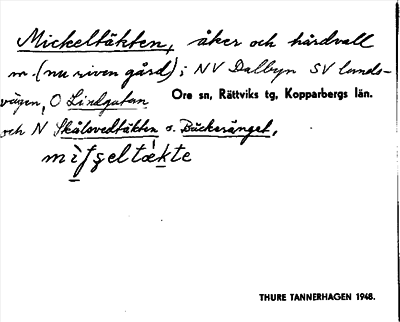 Mickeltäkten, åker och hårdvall
m (nu riven gård); NV Dalbyn SV lands-
vägen, O Lindgatan Ore sn, Rättviks tg, Kopparbergs län.
och N Skålsvedtäkten o. Backeränget,
THURE TANNERHAGEN 1948.